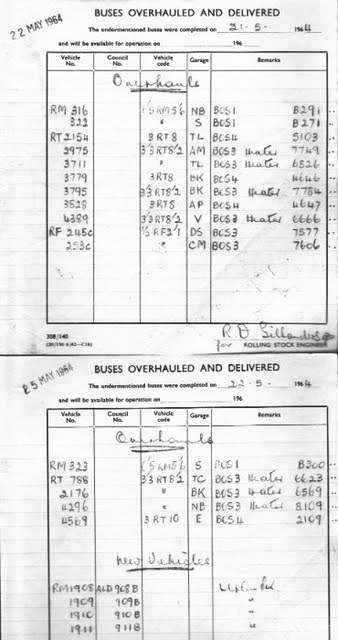 BUSES OVERHAULED AND DELIVERED
22 MAY 1964
The undermentioned buses were completed on 21-5- 1964
and will be available for operation on 196
Vehicle No. Council No. Vehicle code Garage Remarks
Overhauls
RM 316 1/5 RM5/6 NB BOS1 B291
322 " S BOS1 B271
RT 2154 3RT8 TL BOS4 5103
2975 3/3RT8/2 AM BOS3 Heater 7749
3711 " TL BOS3 Heater 6526
3779 3RT8 BK BOS4 4646
3795 3/3RT8/2 BK BOS3 Heater 7784
3528 3RT8 AP BOS4 4647
4389 3/3RT8/2 V BOS3 Heater 6666
RF 245c 1/2 RF2/1 DS BOS3 7577
253c " CM BOS3 7606
308/140
for ROLLING STOCK ENGINEER
BUSES OVERHAULED AND DELIVERED
25 MAY 1964
The undermentioned buses were completed on 22-5- 1964
and will be available for operation on 196
Vehicle No. Council No. Vehicle code Garage Remarks
Overhauls
RM 323 1/5 RM5/6 S BOS1 B300
RT 788 3/3RT8/2 TC BOS3 Heater 6623
2176 " BK BOS3 Heater 6569
4296 " NB BOS3 Heater 8109
4569 3RT10 E BOS4 2109
New Vehicles
RM1908 ALD 908B Uxbridge
1909 909B "
1910 910B "
1911 911B "